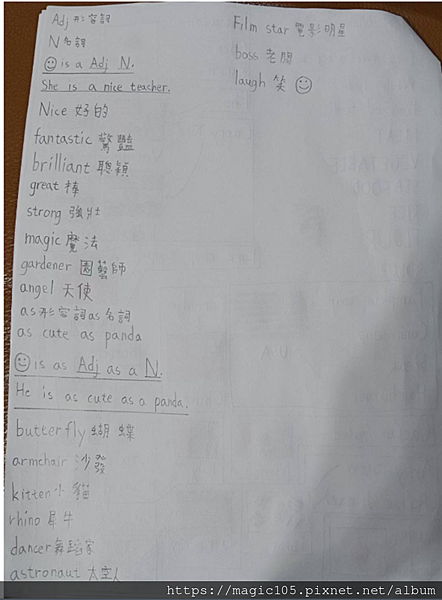 Adj 形容詞
N 名詞
☺ is a Adj N.
She is a nice teacher.
Nice 好的
fantastic 驚豔
brilliant 聰穎
great 棒
strong 強壯
magic 魔法
gardener 園藝師
angel 天使
as 形容詞 as 名詞
as cute as panda
☺ is as Adj as a N.
He is as cute as a panda.
butterfly 蝴蝶
armchair 沙發
kitten 小貓
rhino 犀牛
dancer 舞蹈家
astronaut 太空人
Film star 電影明星
boss 老闆
laugh 笑 ☺
https://magic105.pixnet.net/album